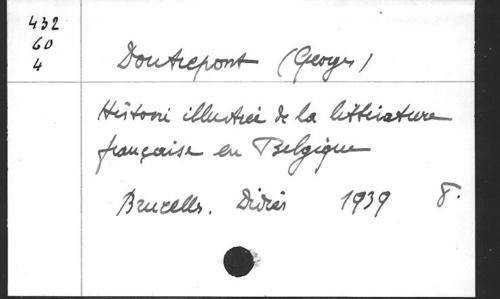 432
60
4
Doutrepont (Georges)
Histoire illustrée de la littérature
française en Belgique
Bruxelles. Didier 1939 8.